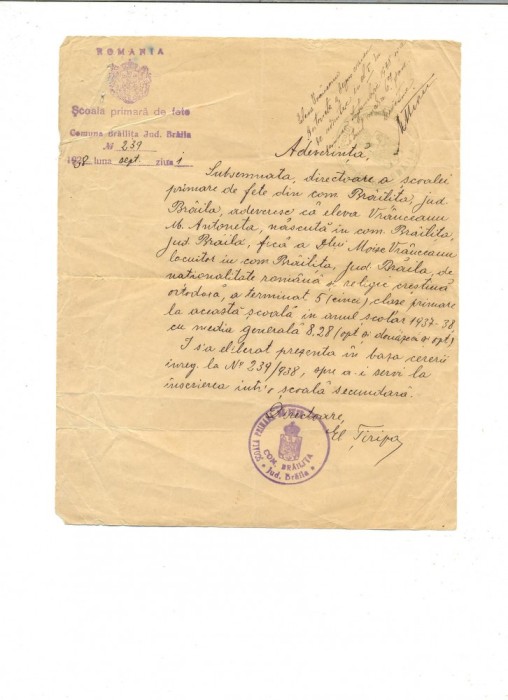 ROMANIA
Școala primară de fete
Comuna Brăilița Jud. Brăila
№ 239
luna sept. ziua 1
Adeverință,
Subsemnata, directoare a școalei
primare de fete din com Brăilița, jud
Brăila, adeveresc că eleva Vrânceanu
M. Antoneta, născută în com. Brăilița,
jud. Braila, fiică a Dlui Moise Vrânceanu
locuitor în com Brăilița, Jud. Brăila, de
naționalitate română și religie creștină
ortodoxă, a terminat 5 (cinci) clase primare
la această școală în anul școlar 1937-38,
cu media generală 8.28 (opt și douăzeci și opt)
I s'a eliberat prezenta în baza cererii
înreg. la № 239/938, spre a-i servi la
înscrierea într'o școală secundară.
Directoare,
ȘCOALA PRIMARĂ
COM. BRĂILIȚA
* Jud. Brăila *